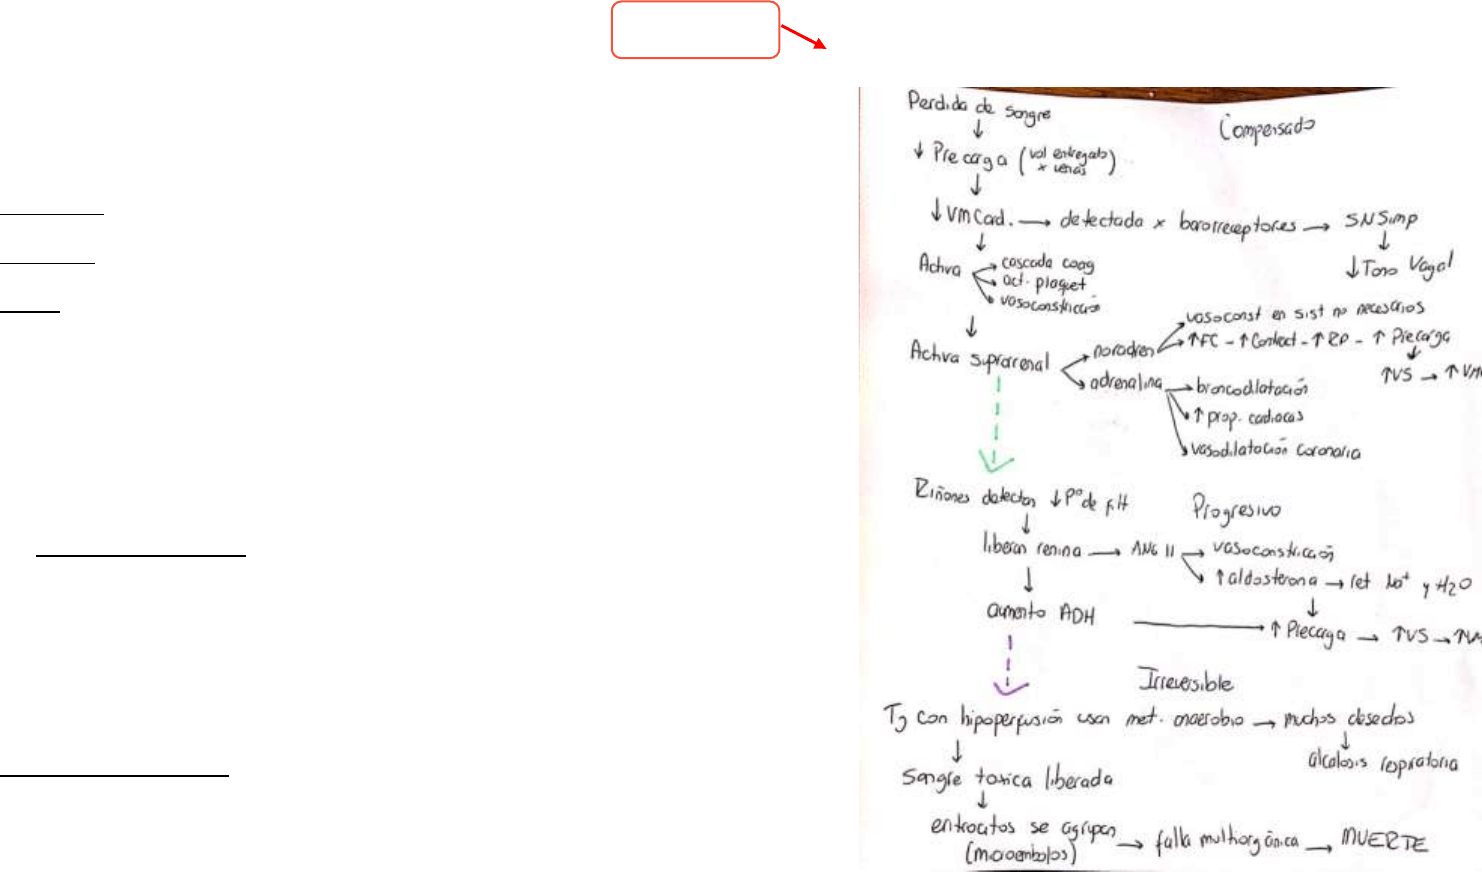 Perdida de sangre
Compensado
↓ Precarga (vol entregado x venas)
↓ VMCard. → detectada x barorreceptores → SNSimp
↓ Tono Vagal
Activa
cascada coag
act. plaquet
vasoconstricción
Activa suprarrenal
noradren
vasoconst en sist no necesarios
↑FC - ↑Contract - ↑RP - ↑ Precarga
↑VS → ↑
adrenalina
broncodilatación
↑ prop. cardiacas
vasodilatación coronaria
Riñones detectan ↓Pº de
Progresivo
liberan renina → ANG II → vasoconstricción
↑aldosterona → ret Na+ y H2O
aumento ADH → ↑ Precarga → ↑VS →
Irreversible
Tj con hipoperfusión usan met. anaerobio → muchos desechos
alcalosis respiratoria
Sangre toxica liberada
eritrocitos se agrupan (microembolos) → falla multiorgánica → MUERTE